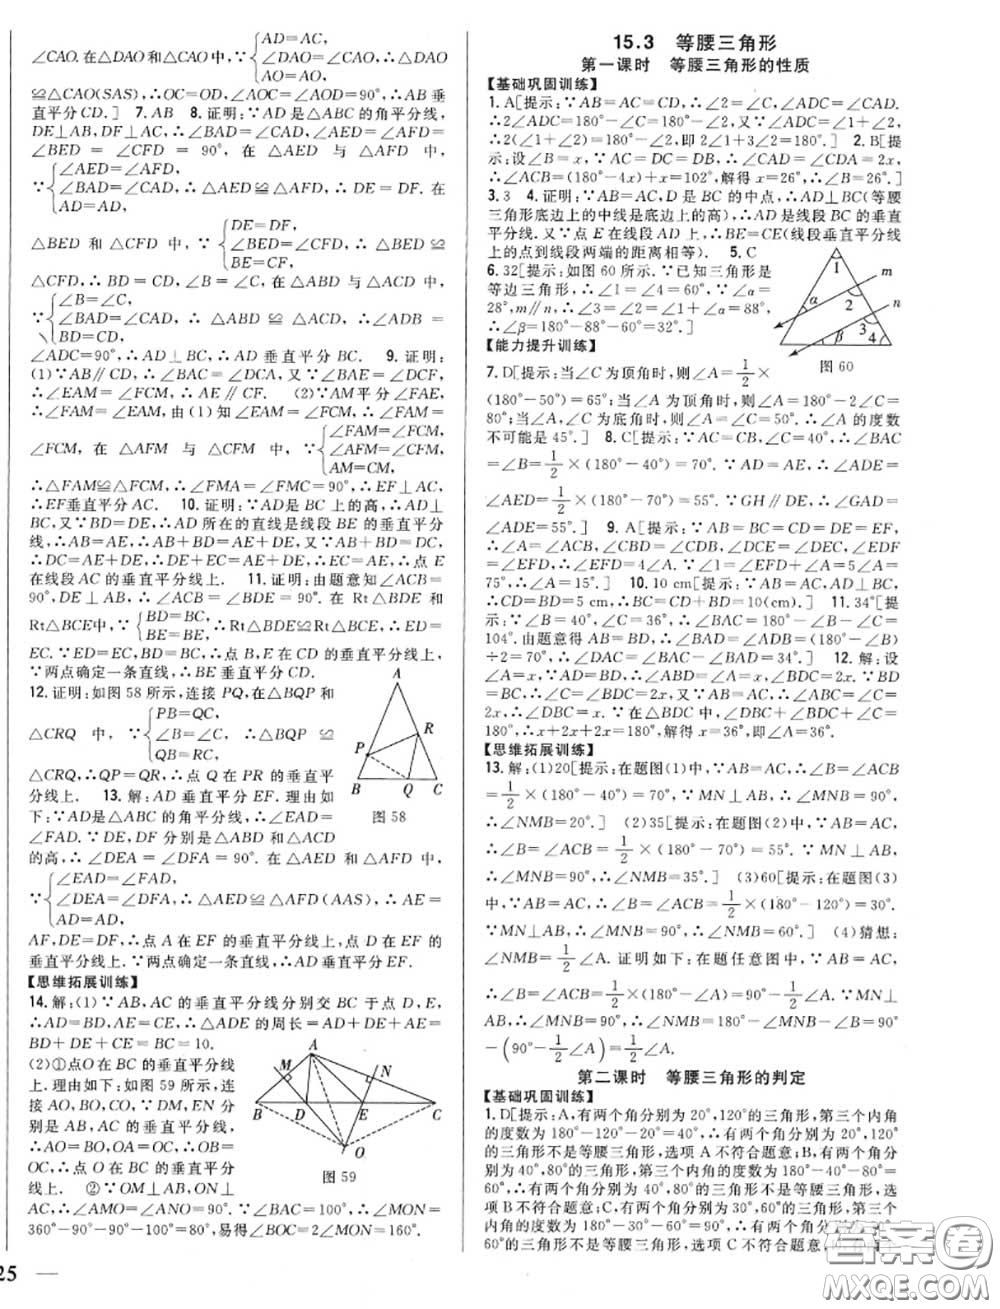 ∠CAO.在△DAO和△CAO中,∵{AD=AC,
∠DAO=∠CAO,∴△DAO
AO=AO,
≌△CAO(SAS),∴OC=OD,∠AOC=∠AOD=90°,∴AB垂
直平分CD.] 7.AB 8.证明:∵AD是△ABC的角平分线,
DE⊥AB,DF⊥AC,∴∠BAD=∠CAD,∠AED=∠AFD=
∠BED=∠CFD=90°,在△AED与△AFD中,
∵{∠AED=∠AFD,
∠BAD=∠CAD,∴△AED≌△AFD,∴DE=DF.在
AD=AD,
△BED和△CFD中,∵{DE=DF,
∠BED=∠CFD,∴△BED≌
BE=CF,
△CFD,∴BD=CD,∠B=∠C,在△ABD与△ACD中,
∵{∠B=∠C,
∠BAD=∠CAD,∴△ABD≌△ACD,∴∠ADB=
BD=CD,
∠ADC=90°,∴AD⊥BC,∴AD垂直平分BC. 9.证明:
(1)∵AB∥CD,∴∠BAC=∠DCA,又∵∠BAE=∠DCF,
∴∠EAM=∠FCM,∴AE∥CF. (2)∵AM平分∠FAE,
∴∠FAM=∠EAM,由(1)知∠EAM=∠FCM,∴∠FAM=
∠FCM,在△AFM与△CFM中,∵{∠FAM=∠FCM,
∠AFM=∠CFM,
AM=CM,
∴△FAM≌△FCM,∴∠FMA=∠FMC=90°,∴EF⊥AC,
∴EF垂直平分AC. 10.证明:∵AD是BC上的高,∴AD⊥
BC,又∵BD=DE,∴AD所在的直线是线段BE的垂直平分
线,∴AB=AE,∴AB+BD=AE+DE,又∵AB+BD=DC,
∴DC=AE+DE,∴DE+EC=AE+DE,∴EC=AE,∴点E
在线段AC的垂直平分线上. 11.证明:由题意知∠ACB=
90°,DE⊥AB,∴∠ACB=∠BDE=90°.在Rt△BDE和
Rt△BCE中,∵{BD=BC,
BE=BE,∴Rt△BDE≌Rt△BCE,∴ED=
EC.∵ED=EC,BD=BC,∴点B,E在CD的垂直平分线上,
∵两点确定一条直线,∴BE垂直平分CD.
12.证明:如图58所示,连接PQ,在△BQP和
△CRQ中,∵{PB=QC,
∠B=∠C,∴△BQP≌
QB=RC,
△CRQ,∴QP=QR,∴点Q在PR的垂直平
分线上. 13.解:AD垂直平分EF.理由如
下:∵AD是△ABC的角平分线,∴∠EAD=
∠FAD.∵DE,DF分别是△ABD和△ACD
的高,∴∠DEA=∠DFA=90°.在△AED和△AFD中,
∵{∠EAD=∠FAD,
∠DEA=∠DFA,∴△AED≌△AFD(AAS),∴AE=
AD=AD,
AF,DE=DF,∴点A在EF的垂直平分线上,点D在EF
的垂直平分线上.∵两点确定一条直线,∴AD垂直平分EF.
【思维拓展训练】
14.解:(1)∵AB,AC的垂直平分线分别交BC于点D,E,
∴AD=BD,AE=CE,∴△ADE的周长=AD+DE+AE=
BD+DE+CE=BC=10.
(2)①点O在BC的垂直平分线
上.理由如下:如图59所示,连
接AO,BO,CO,∵DM,EN分
别是AB,AC的垂直平分线,
∴AO=BO,OA=OC,∴OB=
OC,∴点O在BC的垂直平分
线上. ②∵OM⊥AB,ON⊥
AC,∴∠AMO=∠ANO=90°.∵∠BAC=100°,∴∠MON=
360°-90°-90°-100°=80°,易得∠BOC=2∠MON=160°.
A
P
R
B
Q
C
图58
M
A
N
B
D
E
C
O
图59
25
15.3 等腰三角形
第一课时 等腰三角形的性质
【基础巩固训练】
1.A[提示:∵AB=AC=CD,∴∠2=∠C,∠ADC=∠CAD.
∴2∠ADC=180°-∠C=180°-∠2,又∵∠ADC=∠1+∠2,
∴2(∠1+∠2)=180°-∠2,即2∠1+3∠2=180°.] 2.B[提
示:设∠B=x,∵AC=DC=DB,∴∠CAD=∠CDA=2x,
∴∠ACB=(180°-4x)+x=102°,解得x=26°.∴∠B=26°.]
3.3 4.证明:∵AB=AC,D是BC的中点,∴AD⊥BC(等腰
三角形底边上的中线是底边上的高),∴AD是线段BC的垂直
平分线.又∵点E在线段AD上,∴BE=CE(线段垂直平分线
上的点到线段两端的距离相等). 5.C
6.32[提示:如图60所示.∵已知三角形是
等边三角形,∴∠1=∠4=60°,∵∠α=
28°,m∥n,∴∠3=∠2=∠1+∠α=88°,
∴∠β=180°-88°-60°=32°.]
【能力提升训练】
1
α
2
m
n
3
β
4
图60
7.D[提示:当∠C为顶角时,则∠A=1/2×
(180°-50°)=65°;当∠A为顶角时,则∠A=180°-2∠C=
80°;当∠A,∠C为底角时,则∠A=∠C=50°.∴∠A的度数
不可能是45°.] 8.C[提示:∵AC=BC,∠C=40°,∴∠BAC
=∠B=1/2×(180°-40°)=70°.∵AD=AE,∴∠ADE=
∠AED=1/2×(180°-70°)=55°.∵GH∥DE,∴∠GAD=
∠ADE=55°.] 9.A[提示:∵AB=BC=CD=DE=EF,
∴∠A=∠ACB,∠CBD=∠CDB,∠DCE=∠DEC,∠EDF
=∠EFD,∴∠FED=4∠A.∵∠1=∠EFD+∠A=5∠A=
75°,∴∠A=15°.] 10.10 cm[提示:∵AB=AC,AD⊥BC,
∴CD=BD=5 cm,∴BC=CD+BD=10(cm).] 11.34°[提
示:∵∠B=40°,∠C=36°,∴∠BAC=180°-∠B-∠C=
104°.由题意得AB=BD,∴∠BAD=∠ADB=(180°-∠B)
÷2=70°,∴∠DAC=∠BAC-∠BAD=34°.] 12.解:设
∠A=x,∵AD=BD,∴∠ABD=∠A=x,∴∠BDC=2x.∵BD
=BC,∴∠C=∠BDC=2x,又∵AB=AC,∴∠ABC=∠C=
2x,∴∠DBC=x.在△BDC中,∠DBC+∠BDC+∠C=
180°,∴x+2x+2x=180°,解得x=36°,即∠A=36°.
【思维拓展训练】
13.解:(1)20[提示:在题图(1)中,∵AB=AC,∴∠B=∠ACB
=1/2×(180°-40°)=70°,∵MN⊥AB,∴∠MNB=90°,
∴∠NMB=20°.] (2)35[提示:在题图(2)中,∵AB=AC,
∴∠B=∠ACB=1/2×(180°-70°)=55°.∵MN⊥AB,
∴∠MNB=90°,∴∠NMB=35°.] (3)60[提示:在题图(3)
中,∵AB=AC,∴∠B=∠ACB=1/2×(180°-120°)=30°.
∵MN⊥AB,∴∠MNB=90°,∴∠NMB=60°.] (4)猜想:
∠NMB=1/2∠A.证明如下:在题图任意图中,∵AB=AC,
∴∠B=∠ACB=1/2×(180°-∠A)=90°-1/2∠A,∵MN⊥
AB,∴∠MNB=90°,∴∠NMB=180°-∠MNB-∠B=90°
-(90°-1/2∠A)=1/2∠A.
第二课时 等腰三角形的判定
【基础巩固训练】
1.D[提示:A,有两个角分别为20°,120°的三角形,第三个内角
的度数为180°-120°-20°=40°,∴有两个角分别为20°,120°
的三角形不是等腰三角形,选项A不符合题意;B,有两个角分别为
40°,80°的三角形,第三个内角的度数为180°-40°-80°=
60°,∴有两个角分别为40°,80°的三角形不是等腰三角形,选
项B不符合题意;C,有两个角分别为30°,60°的三角形,第三个
内角的度数为180°-30°-60°=90°,∴有两个角分别为30°,
60°的三角形不是等腰三角形,选项C不符合题意;
答案圈
MXQE.COM